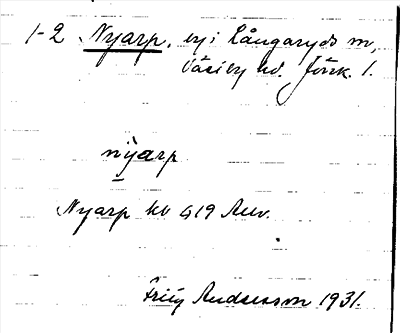 1-2 Nyarp, by i Långaryds sn,
Västbo hd. Jönk. l.
nỳarp
Nyarp kb 419 Auv.
Fritz Andersson 1931.